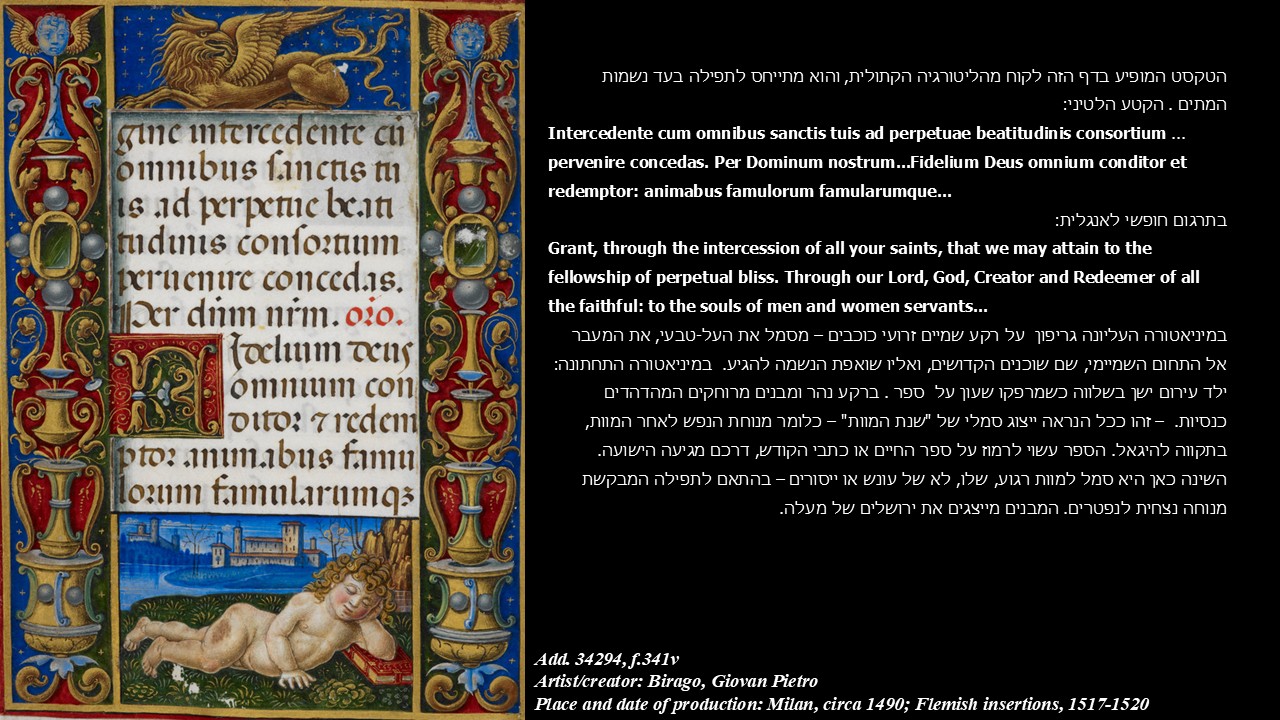 gine intercedente cū
omnibus sanctis tu
is ad perpetue beati
tudinis consortium
peruenire concedas.
Per dūm nr̄m. oro.
Fidelium deus
omnium con
ditor ⁊ redem
ptor animabus famu
lorum famularumqꝫ
הטקסט המופיע בדף הזה לקוח מהליטורגיה הקתולית, והוא מתייחס לתפילה בעד נשמות
המתים . הקטע הלטיני:
Intercedente cum omnibus sanctis tuis ad perpetuae beatitudinis consortium ...
pervenire concedas. Per Dominum nostrum...Fidelium Deus omnium conditor et
redemptor: animabus famulorum famularumque...
בתרגום חופשי לאנגלית:
Grant, through the intercession of all your saints, that we may attain to the
fellowship of perpetual bliss. Through our Lord, God, Creator and Redeemer of all
the faithful: to the souls of men and women servants...
במיניאטורה העליונה גריפון על רקע שמיים זרועי כוכבים – מסמל את העל-טבעי, את המעבר
אל התחום השמיימי, שם שוכנים הקדושים, ואליו שואפת הנשמה להגיע. במיניאטורה התחתונה:
ילד עירום ישן בשלווה כשמרפקו שעון על ספר . ברקע נהר ומבנים מרוחקים המהדהדים
כנסיות. – זהו ככל הנראה ייצוג סמלי של "שנת המוות" – כלומר מנוחת הנפש לאחר המוות,
בתקווה להיגאל. הספר עשוי לרמוז על ספר החיים או כתבי הקודש, דרכם מגיעה הישועה.
השינה כאן היא סמל למוות רגוע, שלו, לא של עונש או ייסורים – בהתאם לתפילה המבקשת
מנוחה נצחית לנפטרים. המבנים מייצגים את ירושלים של מעלה.
Add. 34294, f.341v
Artist/creator: Birago, Giovan Pietro
Place and date of production: Milan, circa 1490; Flemish insertions, 1517-1520